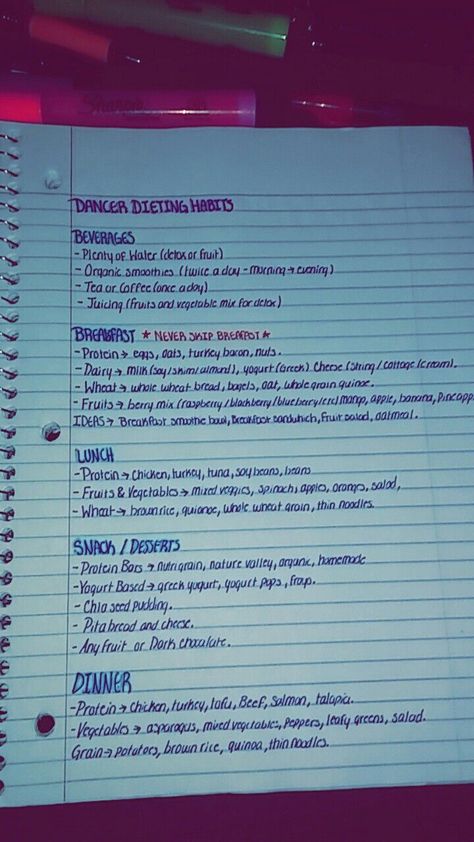 Sharpie
DANCER DIETING HABITS
BEVERAGES
- Plenty of Water (detox or fruit)
- Organic smoothies (twice a day - morning → evening)
- Tea or Coffee (once a day)
- Juicing (fruits and vegetable mix for detox)
BREAKFAST ★ NEVER SKIP BREAKFAST ★
- Protein → eggs, oats, turkey bacon, nuts.
- Dairy → milk (soy/skim/almond), yogurt (Greek) Cheese (String/cottage/cream).
- Wheat → whole wheat bread, bagels, oat, whole grain quinoe.
- Fruits → berry mix (raspberry/blackberry/blueberry/etc) mango, apple, banana, Pineapp
IDEAS → Breakfast smoothie bowl, Breakfast sandwhich, Fruit salad, oatmeal.
LUNCH
- Protein → Chicken, turkey, tuna, soy beans, beans
- Fruits & Vegetables → mixed veggies, spinach, apples, oranges, salad,
- Wheat → brown rice, quionce, whole wheat grain, thin noodles.
SNACK / DESSERTS
- Protein Bars → nutrigrain, nature valley, organic, homemade
- Yogurt Based → greek yogurt, yogurt pops, froyo.
- Chia seed pudding.
- Pita bread and cheese.
- Any fruit or Dark chocolate.
DINNER
- Protein → chicken, turkey, tofu, Beef, Salmon, talapia.
- Vegetables → asparagus, mixed vegetables, Peppers, leafy greens, salad.
Grain → potatoes, brown rice, quinoa, thin noodles.